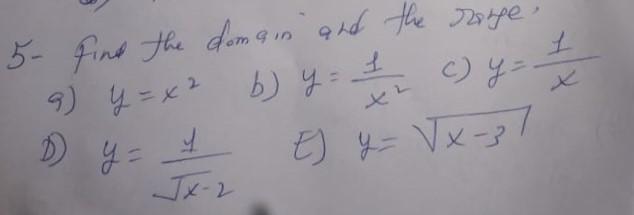 5- find the domain and the range.
a) y = x² b) y = 1/x² c) y = 1/x
D) y = 1/√x-2 E) y = √x-3